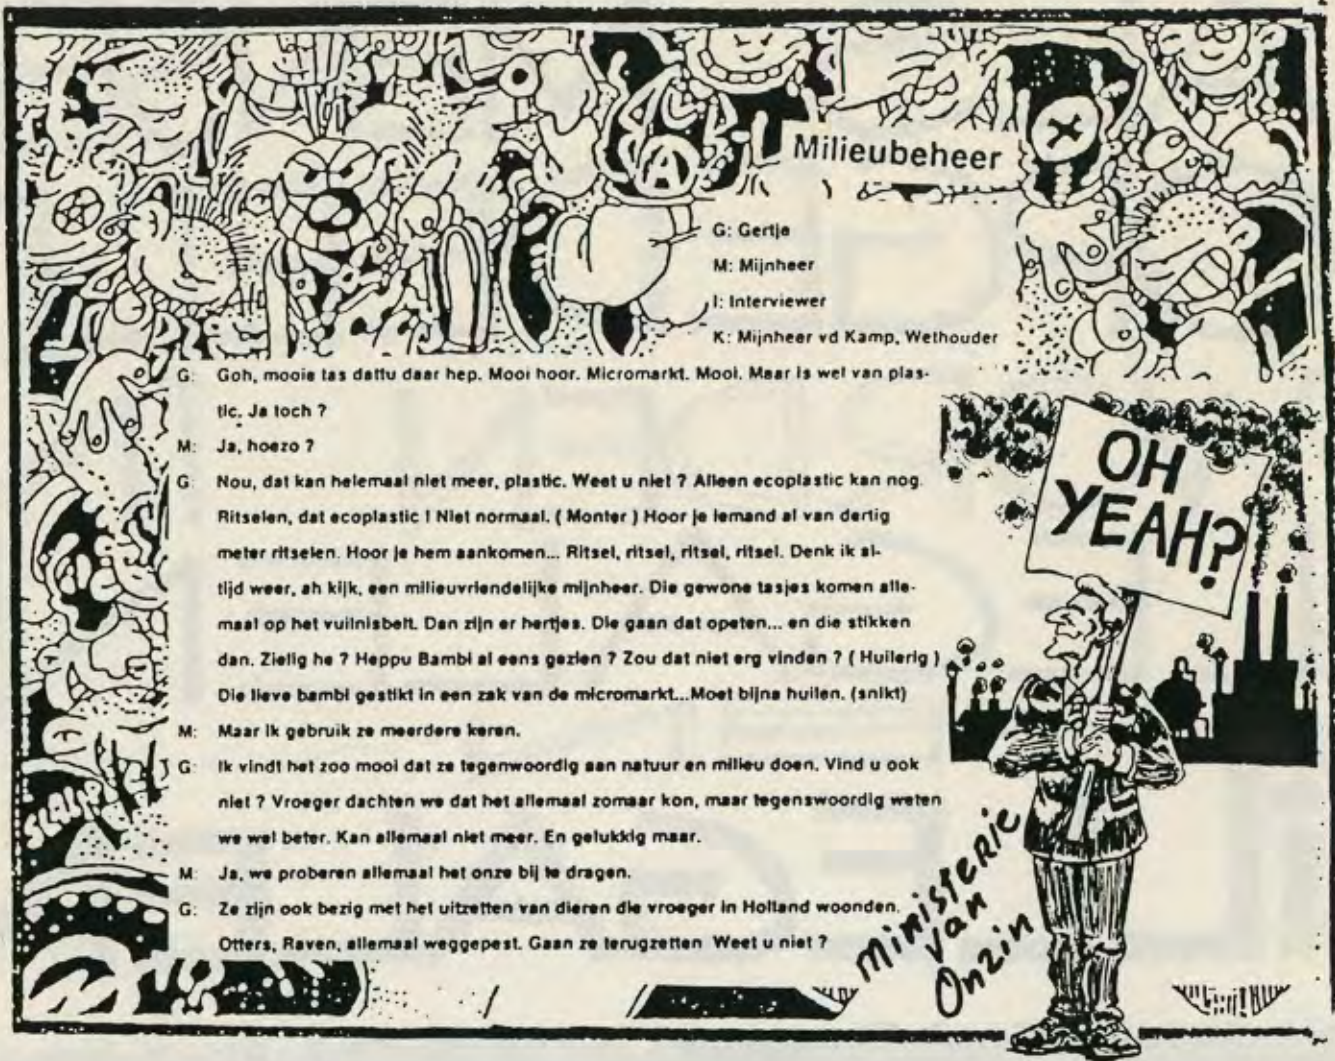 Milieubeheer
G: Gertje
M: Mijnheer
I: Interviewer
K: Mijnheer vd Kamp, Wethouder
G: Goh, mooie tas dattu daar hep. Mooi hoor. Micromarkt. Mooi. Maar is wel van plas-
tic. Ja toch ?
M: Ja, hoezo ?
G: Nou, dat kan helemaal niet meer, plastic. Weet u niet ? Alleen ecoplastic kan nog.
Ritselen, dat ecoplastic ! Niet normaal. ( Monter ) Hoor je iemand al van dertig
meter ritselen. Hoor je hem aankomen... Ritsel, ritsel, ritsel, ritsel. Denk ik al-
tijd weer, ah kijk, een milieuvriendelijke mijnheer. Die gewone tasjes komen alle-
maal op het vuilnisbelt. Dan zijn er hertjes. Die gaan dat opeten... en die stikken
dan. Zielig he ? Heppu Bambi al eens gezien ? Zou dat niet erg vinden ? ( Huilerig )
Die lieve bambi gestikt in een zak van de micromarkt...Moet bijna huilen. (snikt)
M: Maar ik gebruik ze meerdere keren.
G: Ik vindt het zoo mooi dat ze tegenwoordig aan natuur en milieu doen. Vind u ook
niet ? Vroeger dachten we dat het allemaal zomaar kon, maar tegenswoordig weten
we wel beter. Kan allemaal niet meer. En gelukkig maar.
M: Ja, we proberen allemaal het onze bij te dragen.
G: Ze zijn ook bezig met het uitzetten van dieren die vroeger in Holland woonden.
Otters, Raven, allemaal weggepest. Gaan ze terugzetten Weet u niet ?
OH
YEAH?
Ministerie
van
Onzin